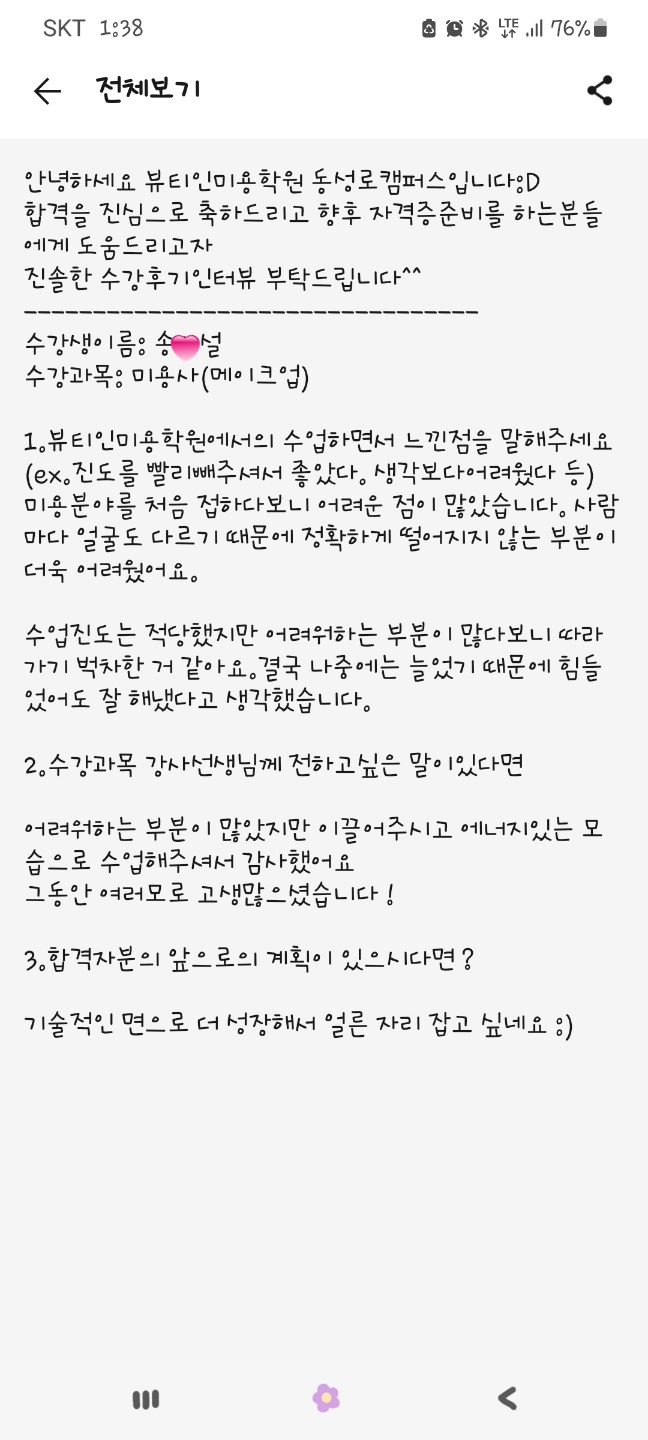 SKT 1:38
LTE 76%
전체보기
안녕하세요 뷰티인미용학원 동성로캠퍼스입니다:D
합격을 진심으로 축하드리고 향후 자격증준비를 하는분들
에게 도움드리고자
진솔한 수강후기인터뷰 부탁드립니다^^
---------------------------------
수강생이름: 송 설
수강과목: 미용사(메이크업)
1.뷰티인미용학원에서의 수업하면서 느낀점을 말해주세요
(ex.진도를 빨리빼주셔서 좋았다. 생각보다어려웠다 등)
미용분야를 처음 접하다보니 어려운 점이 많았습니다. 사람
마다 얼굴도 다르기 때문에 정확하게 떨어지지 않는 부분이
더욱 어려웠어요.
수업진도는 적당했지만 어려워하는 부분이 많다보니 따라
가기 벅차한 거 같아요.결국 나중에는 늘었기 때문에 힘들
었어도 잘 해냈다고 생각했습니다.
2.수강과목 강사선생님께 전하고싶은 말이있다면
어려워하는 부분이 많았지만 이끌어주시고 에너지있는 모
습으로 수업해주셔서 감사했어요
그동안 여러모로 고생많으셨습니다!
3.합격자분의 앞으로의 계획이 있으시다면?
기술적인 면으로 더 성장해서 얼른 자리 잡고 싶네요 :)